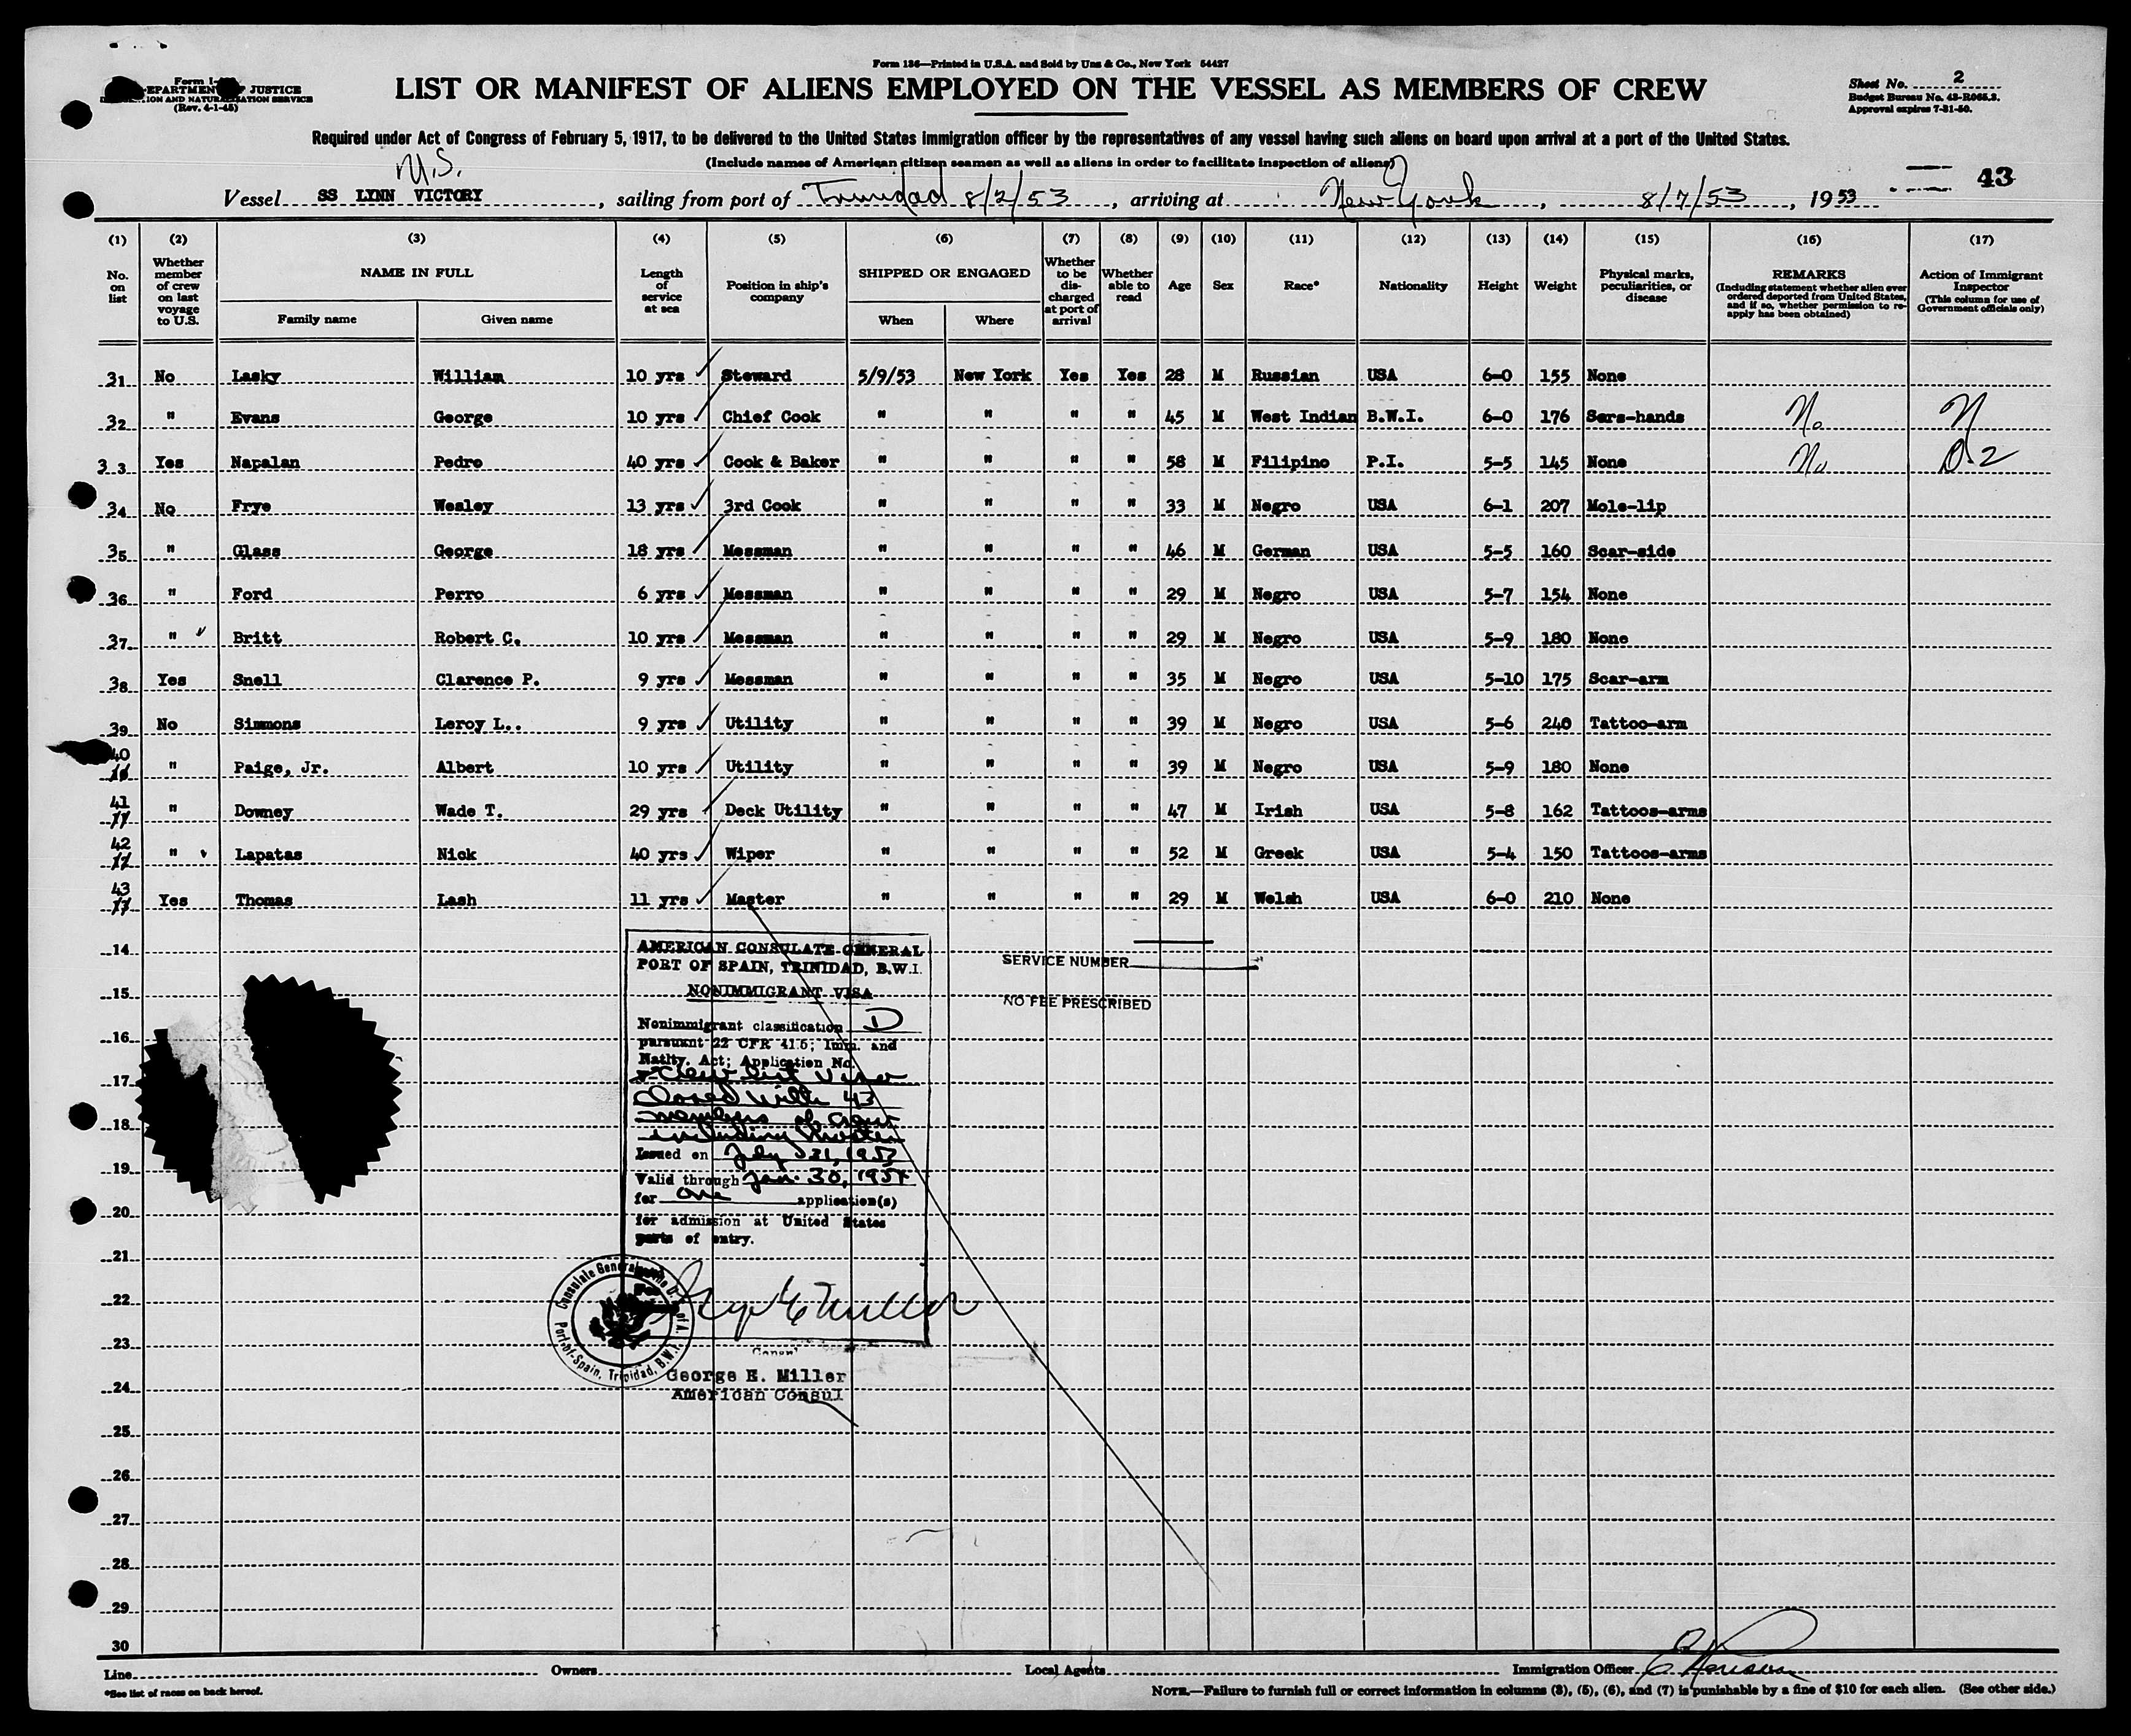 Form 136—Printed in U.S.A. and Sold by Unz & Co., New York 54427
JUSTICE
(Rev. 4-1-45)
LIST OR MANIFEST OF ALIENS EMPLOYED ON THE VESSEL AS MEMBERS OF CREW
Sheet No. 2
Budget Bureau No. 43-R065.3.
Approval expires 7-31-50.
Required under Act of Congress of February 5, 1917, to be delivered to the United States immigration officer by the representatives of any vessel having such aliens on board upon arrival at a port of the United States.
(Include names of American citizen seamen as well as aliens in order to facilitate inspection of aliens)
U.S.
43
Vessel SS LYNN VICTORY, sailing from port of Trinidad 8/2/53, arriving at New York, 8/7/53, 1953
(1) (2) (3) (4) (5) (6) (7) (8) (9) (10) (11) (12) (13) (14) (15) (16) (17)
No. on list
Whether member of crew on last voyage to U.S.
NAME IN FULL
Family name
Given name
Length of service at sea
Position in ship's company
SHIPPED OR ENGAGED
When
Where
Whether to be discharged at port of arrival
Whether able to read
Age
Sex
Race*
Nationality
Height
Weight
Physical marks, peculiarities, or disease
REMARKS
(Including statement whether alien ever ordered deported from United States, and if so, whether permission to re-apply has been obtained)
Action of Immigrant Inspector
(This column for use of Government officials only)
31 No Lasky William 10 yrs Steward 5/9/53 New York Yes Yes 28 M Russian USA 6-0 155 None
32 " Evans George 10 yrs Chief Cook " " " " 45 M West Indian B.W.I. 6-0 176 Sars-hands No N
33 Yes Napalan Pedro 40 yrs Cook & Baker " " " " 58 M Filipino P.I. 5-5 145 None No D-2
34 No Frye Wesley 13 yrs 3rd Cook " " " " 33 M Negro USA 6-1 207 Mole-lip
35 " Glass George 18 yrs Messman " " " " 46 M German USA 5-5 160 Scar-side
36 " Ford Perro 6 yrs Messman " " " " 29 M Negro USA 5-7 154 None
37 " Britt Robert C. 10 yrs Messman " " " " 29 M Negro USA 5-9 180 None
38 Yes Snell Clarence P. 9 yrs Messman " " " " 35 M Negro USA 5-10 175 Scar-arm
39 No Simmons Leroy L.. 9 yrs Utility " " " " 39 M Negro USA 5-6 240 Tattoo-arm
40 " Paige, Jr. Albert 10 yrs Utility " " " " 39 M Negro USA 5-9 180 None
41 " Downey Wade T. 29 yrs Deck Utility " " " " 47 M Irish USA 5-8 162 Tattoos-arms
42 " Lapatas Nick 40 yrs Wiper " " " " 52 M Greek USA 5-4 150 Tattoos-arms
43 Yes Thomas Lash 11 yrs Master " " " " 29 M Welsh USA 6-0 210 None
14
15
16
17
18
19
20
21
22
23
24
25
26
27
28
29
30
AMERICAN CONSULATE GENERAL
PORT OF SPAIN, TRINIDAD, B.W.I.
NONIMMIGRANT VISA
Nonimmigrant classification D
pursuant 22 CFR 41.5; Imm. and
Natlty. Act; Application No.
Crew list Visa
closed with 43
members of crew
including Master
Issued on July 31, 1953
Valid through Jan. 30, 1954
for One application(s)
for admission at United States
ports of entry.
SERVICE NUMBER
NO FEE PRESCRIBED
Port-of-Spain, Trinidad, B.W.I.
George E. Miller
American Consul
Line Owners Local Agents Immigration Officer
*See list of races on back hereof.
NOTE.—Failure to furnish full or correct information in columns (3), (5), (6), and (7) is punishable by a fine of $10 for each alien. (See other side.)